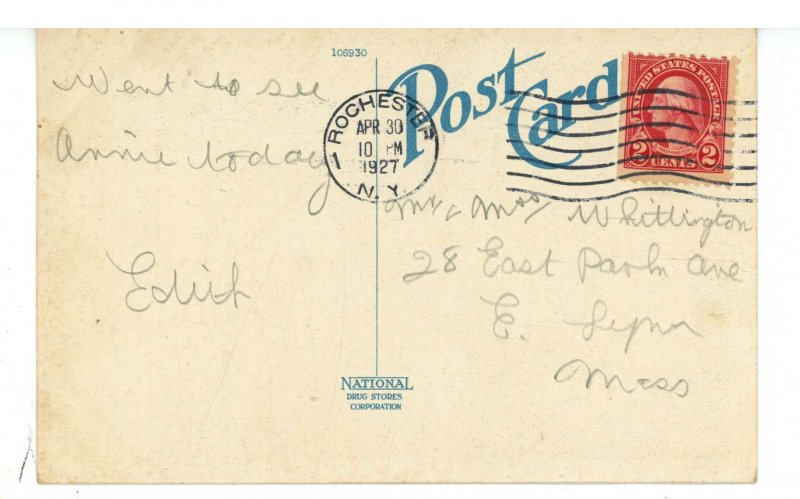 106930
Post Card
UNITED STATES POSTAGE
WASHINGTON
2 CENTS 2
ROCHESTER
APR 30
10 PM
1927
N.Y.
Went to see
Annie today
Edith
Mr & Mrs Whittington
28 East Park Ave
E. Lynn
Mass
NATIONAL
DRUG STORES
CORPORATION